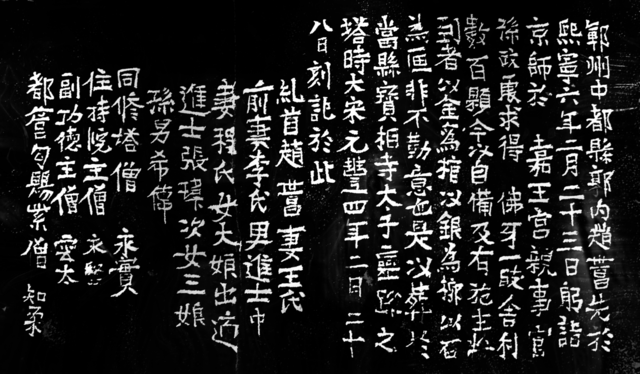 鄆州中都縣郭內趙譻先於
熙寧六年二月二十三日躬詣
京師於 嘉王宮親事官
孫政處求得 佛牙一段舍利
數百顆今以自備及有施主
到者以金為棺以銀為槨以石
為匣非不勤意也是以葬於
當縣寶相寺太子靈蹤之
塔時大宋元豐四年二月二十
八日刻記於此
乣首趙 譻 妻王氏
前妻李氏男進士巾
妻程氏女大娘出適
進士張瑋次女三娘
孫男希
同修塔僧 永實
住持院主僧 永
副功德主僧 雲太
都管勾賜紫僧 知柔